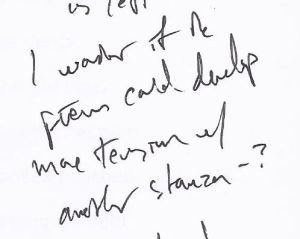 is left
I wonder if the
poems could develop
more tension w/
another stanza -?